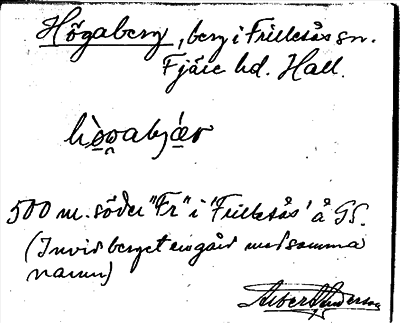 Högaberg, berg i Frillesås sn.
Fjäre hd. Hall.
hò̱o̱abjær
500 m. söder "Fr" i 'Frillesås' å GS.
(Invid berget en gård med samma
namn)
Albert Anderson